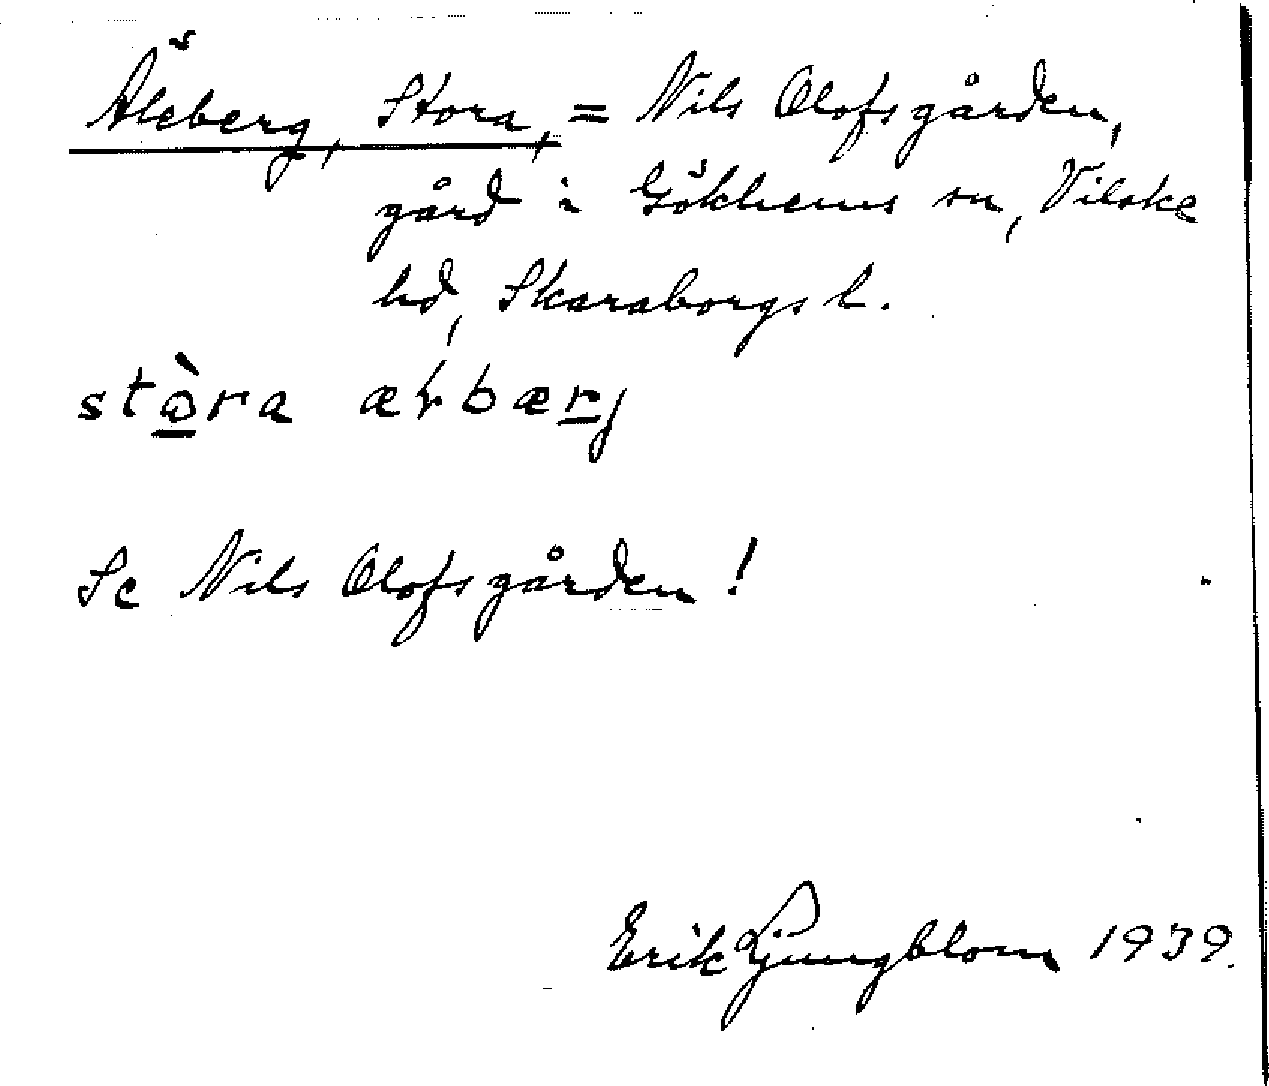 Äleberg, Stora, = Nils Olofsgården,
gård i Gökhems sn, Vilske
hd, Skaraborgs l.
stòra æłbærj
Se Nils Olofsgården!
Erik Ljungblom 1939.